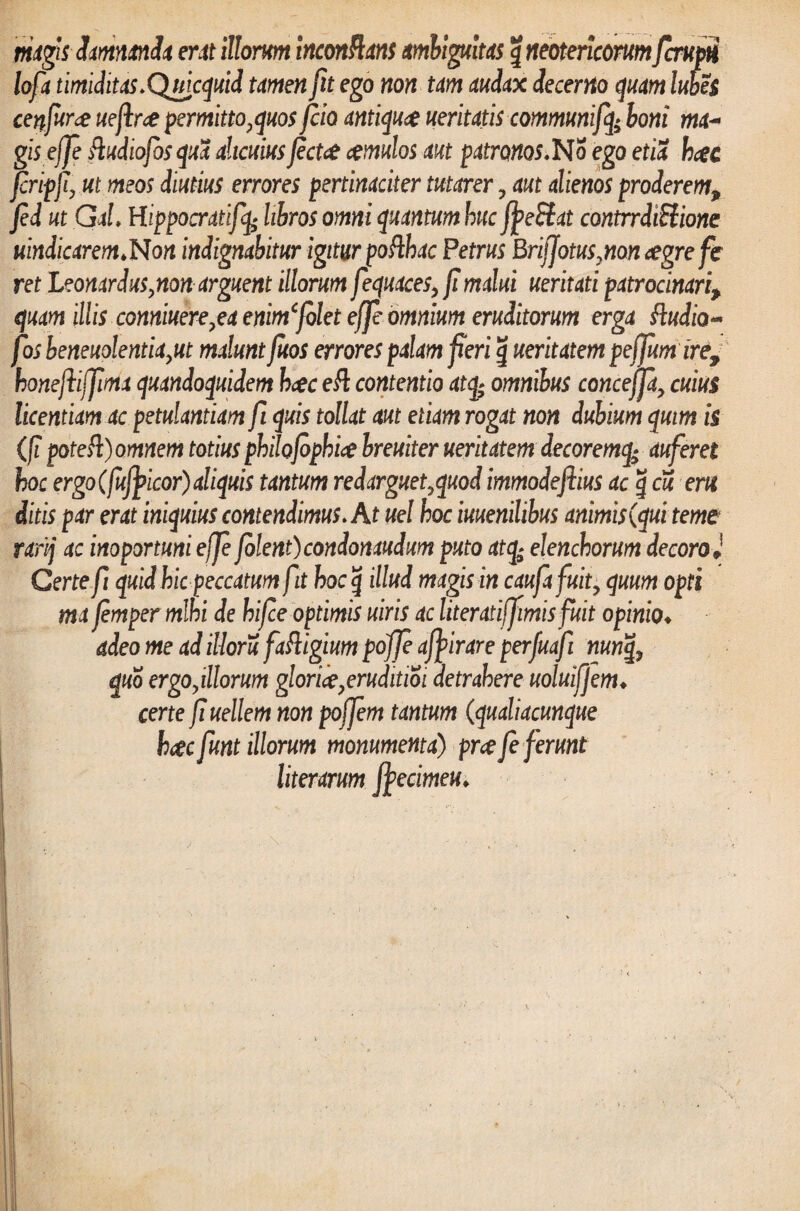 magis damnanda erat illorum inconſtans ambiguitas ꝙ̃ neotericorum ſcrupu
loſa timiditas.Quicquid tamen ſit ego non tam audax decerno quam lubẽs
cenſuræ ueſtræ permitto,quos ſcio antiquæ ueritatis communiſq; boni ma-
gis eſſe ſtudioſos quã alicuius ſectæ æmulos aut patronos.Nõ ego etiã hæc
ſcripſi, ut meos diutius errores pertinaciter tutarer, aut alienos proderem,
ſed ut Gal. Hippocratiſq; libros omni quantum huc ſpectat contrrdictione
uindicarem.Non indignabitur igitur poſthac Petrus Briſſotus,non ægre fe
ret Leonardus,non arguent illorum ſequaces, ſi malui ueritati patrocinari,
quam illis conniuere,ea enim ſolet eſſe omnium eruditorum erga ſtudio-
ſos beneuolentia,ut malunt ſuos errores palam fieri ꝙ̃ ueritatem peſſum ire,
honeſtiſſima quandoquidem hæc eſt contentio atq; omnibus conceſſa, cuius
licentiam ac petulantiam ſi quis tollat aut etiam rogat non dubium quim is
(ſi poteſt) omnem totius philoſophiæ breuiter ueritatem decoremq; auferet
hoc ergo(ſuſpicor)aliquis tantum redarguet,quod immodeſtius ac ꝙ̃ cũ eru
ditis par erat iniquius contendimus. At uel hoc iuuenilibus animis(qui teme
rarij ac inoportuni eſſe ſolent)condonaudum puto atq; elenchorum decoro.
Certe ſi quid hic peccatum ſit hoc ꝙ̃ illud magis in cauſa fuit, quum opti
ma ſemper mihi de hiſce optimis uiris ac literatiſſimis fuit opinio.
adeo me ad illorũ faſtigium poſſe aſpirare perſuaſi nunꝙ̃,
quo ergo,illorum gloriæ,eruditiõi detrahere uoluiſſem.
certe ſi uellem non poſſem tantum (qualiacunque
hæc ſunt illorum monumenta) præ ſe ferunt
literarum ſpecimeu.